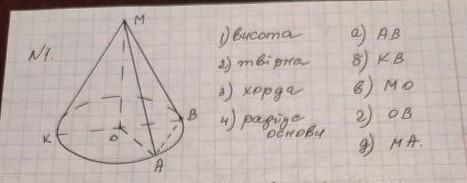 №1.
M
K
O
B
A
1) висота
2) твірна
3) хорда
4) радіус основи
а) AB
б) KB
в) MO
г) OB
д) MA.